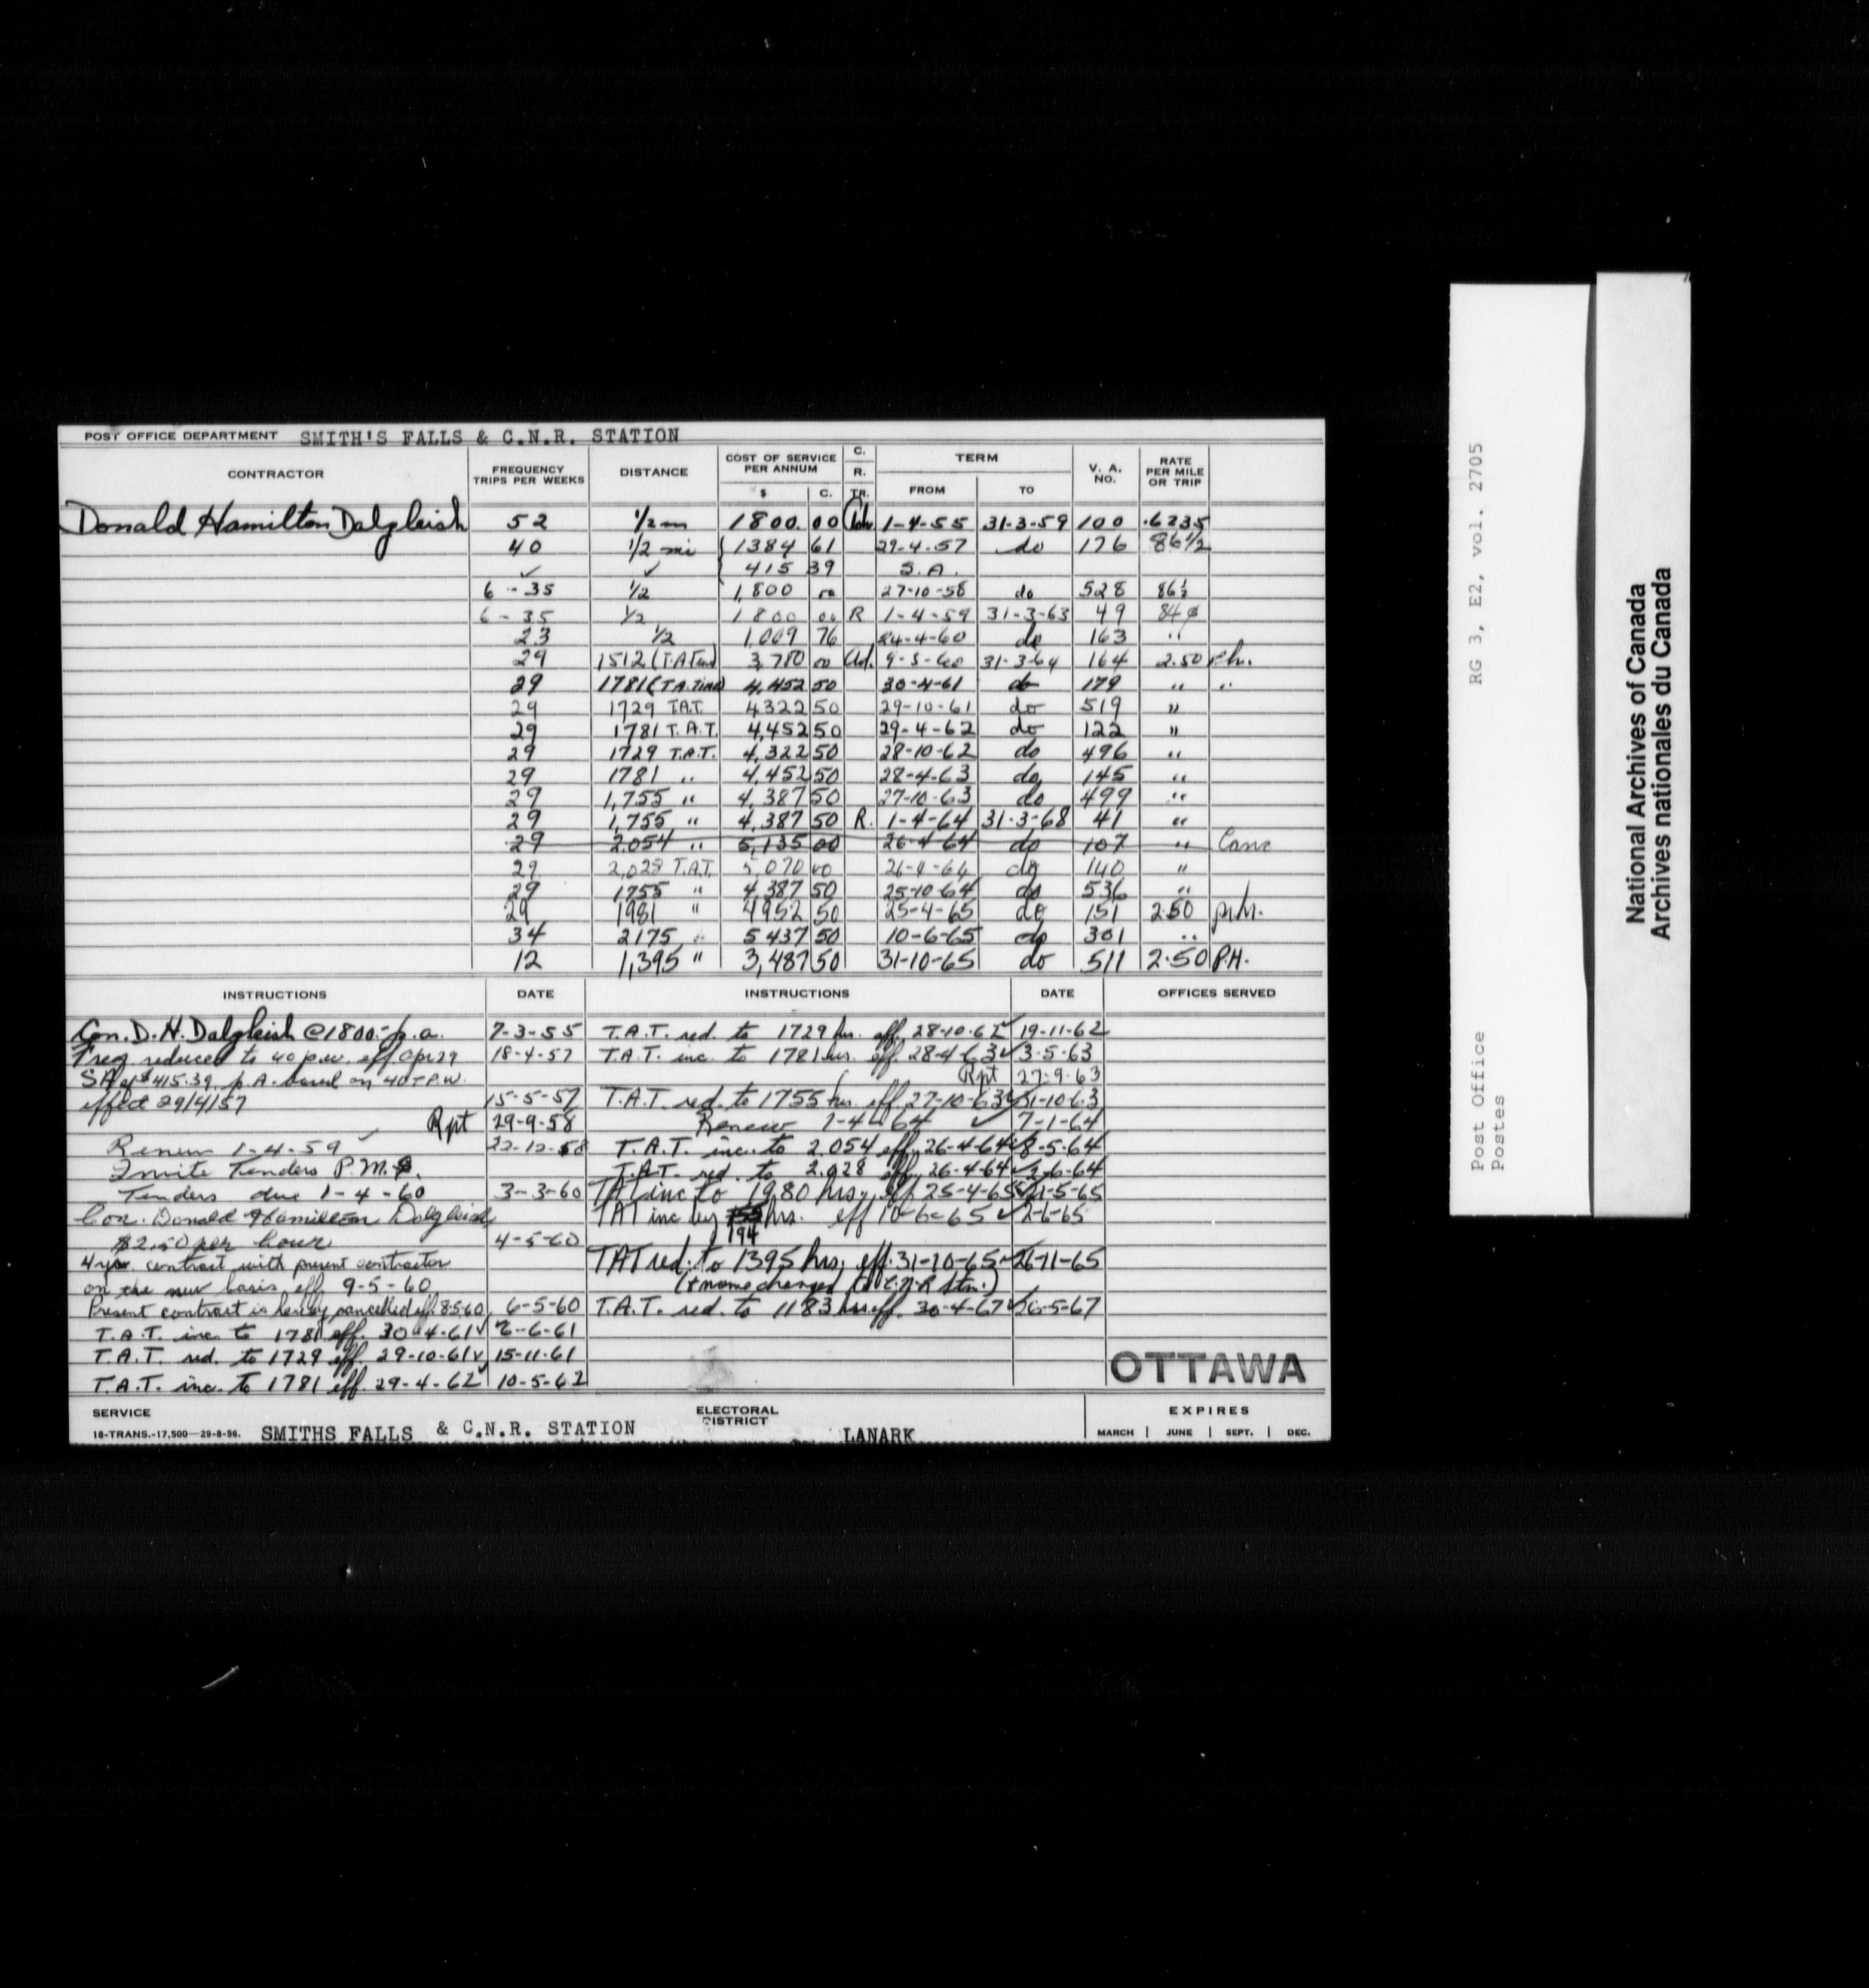 POST OFFICE DEPARTMENT SMITH'S FALLS & C.N.R. STATION
CONTRACTOR FREQUENCY TRIPS PER WEEKS DISTANCE COST OF SERVICE PER ANNUM $ C. C. R. TR. TERM FROM TO V. A. NO. RATE PER MILE OR TRIP
Donald Hamilton Dalgleish 52 1/2 m 1800. 00 1-4-55 31-3-59 100 .6235
40 1/2 mi 1384 61 29-4-57 do 176 86 1/2
✓ ✓ 415 39 S.A.
6 - 35 1/2 1,800 00 27-10-58 do 528 86 1/2
6 - 35 1/2 1800 00 R 1-4-59 31-3-63 49 84¢
23 1/2 1,009 76 24-4-60 do 163 "
29 1512 (T.A. Time) 3,780 00 Ad. 9-5-60 31-3-64 164 2.50 P.hr.
29 1781 (T.A. Time) 4,452 50 30-4-61 do 179 " "
29 1729 T.A.T. 4322 50 29-10-61 do 519 "
29 1781 T.A.T. 4,452 50 29-4-62 do 122 "
29 1729 T.A.T. 4,322 50 28-10-62 do 496 "
29 1781 " 4,452 50 28-4-63 do 145 "
29 1,755 " 4,387 50 27-10-63 do 499 "
29 1,755 " 4,387 50 R. 1-4-64 31-3-68 41 "
29 2,054 " 5,135 00 26-4-64 do 107 " Canc
29 2,028 T.A.T. 5,070 00 26-4-64 do 140 "
29 1755 " 4,387 50 25-10-64 do 536 "
29 1981 " 4952 50 25-4-65 do 151 2.50 p.h.
34 2175 " 5437 50 10-6-65 do 301 "
12 1,395 " 3,487 50 31-10-65 do 511 2.50 P.H.
INSTRUCTIONS DATE INSTRUCTIONS DATE OFFICES SERVED
Con. D. H. Dalgleish @ 1800.- p.a. 7-3-55 T.A.T. red. to 1729 hrs. eff. 28-10-62 ✓ 19-11-62
Freq. reduced to 40 p.w. eff Apr 29 18-4-57 T.A.T. inc. to 1781 hrs. eff. 28-4-63 ✓ 3-5-63
SA of $415.39 p.A. based on 40 T.P.W. Rpt 27-9-63
effect 29/4/57 15-5-57 T.A.T. red. to 1755 hrs. eff. 27-10-63 ✓ 31-10-63
Rpt 29-9-58 Renew 1-4-64 ✓ 7-1-64
Renew 1-4-59 ✓ 22-12-58 T.A.T. inc. to 2.054 eff. 26-4-64 ✓ 8-5-64
Invite Tenders P.M. T.A.T. red. to 2.028 eff. 26-4-64 ✓ 2-6-64
Tenders due 1-4-60 3-3-60 TAT inc to 1980 hrs, eff 25-4-65 ✓ 21-5-65
Con. Donald Hamilton Dalgleish TAT inc by 194 hrs. eff 10-6-65 ✓ 2-6-65
$2.50 per hour 4-5-60
4 yr. contract with present contractor TAT red. to 1395 hrs, eff. 31-10-65 ✓ 26-11-65
on the new basis eff. 9-5-60 (+ name changed to C.N.R Stn.)
Present contract is hereby cancelled eff. 8-5-60 6-5-60 T.A.T. red. to 1183 hrs eff. 30-4-67 ✓ 26-5-67
T.A.T. inc. to 1781 eff. 30-4-61 ✓ 6-6-61
T.A.T. red. to 1729 eff. 29-10-61 ✓ 15-11-61
T.A.T. inc. to 1781 eff. 29-4-62 ✓ 10-5-62
OTTAWA
SERVICE ELECTORAL DISTRICT EXPIRES
18-TRANS.-17,500—29-8-56. SMITHS FALLS & C.N.R. STATION LANARK MARCH | JUNE | SEPT. | DEC.
RG 3, E2, vol. 2705
Post Office
Postes
National Archives of Canada
Archives nationales du Canada